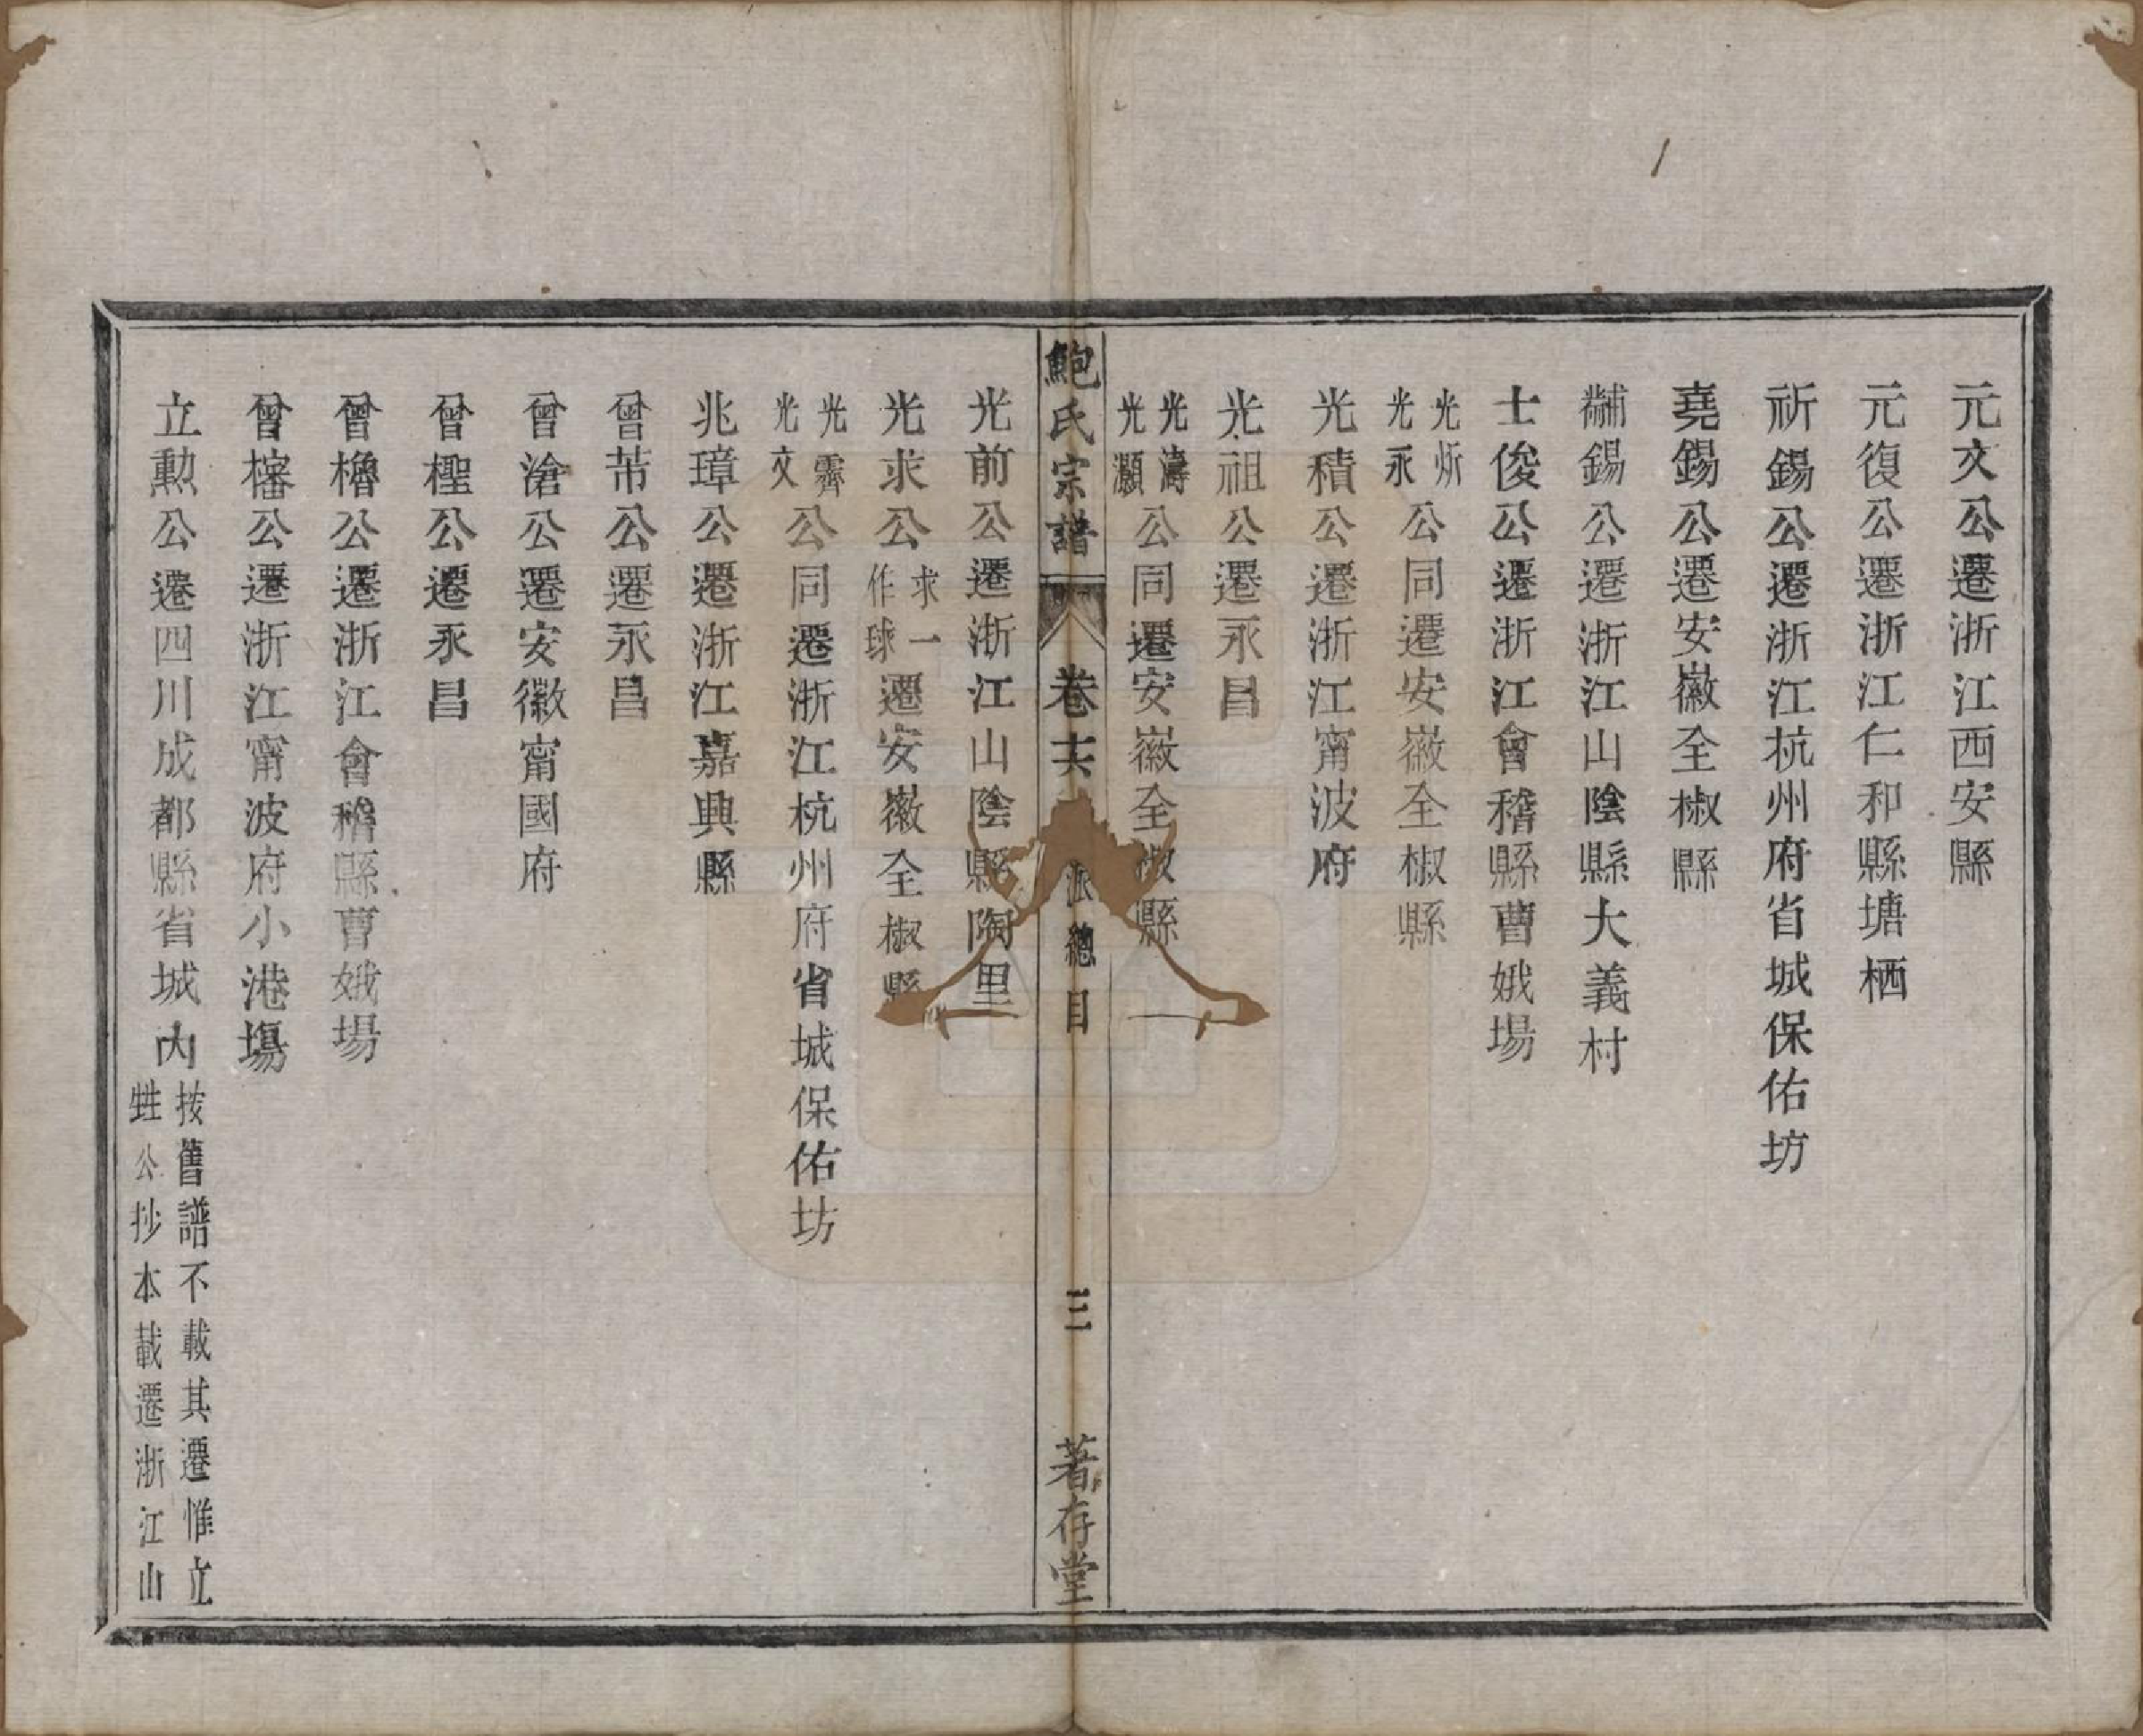 元文公遷浙江西安縣
元復公遷浙江仁和縣塘栖
祈錫公遷浙江杭州府省城保佑坊
堯錫公遷安徽全椒縣
黼錫公遷浙江山陰縣大義村
士俊公遷浙江會稽縣曹娥場
光炘光永公同遷安徽全椒縣
光積公遷浙江甯波府
光祖公遷永昌
光濤光灝公同遷安徽全椒縣
鮑氏宗譜 卷六 派總目 三 著存堂
光前公遷浙江山陰縣陶里
光求公求一作球遷安徽全椒縣
光霽光文公同遷浙江杭州府省城保佑坊
兆璋公遷浙江嘉興縣
曾芾公遷永昌
曾滄公遷安徽甯國府
曾檉公遷永昌
曾櫓公遷浙江會稽縣曹娥場
曾櫁公遷浙江甯波府小港塲
立勲公遷四川成都縣省城內按舊譜不載其遷惟立甡公抄本載遷浙江山